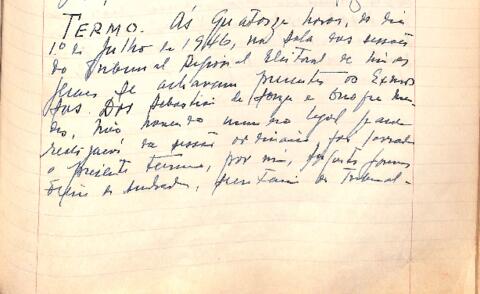 TERMO. Ás quatorze horas, do dia
1º de Julho de 1946, na sala das sessões
do Tribunal Regional Eleitoral de Minas
Gerais se achavam presentes os Exmos
Srs. Drs Sebastião de Souza e Onofre Men
des, não havendo numero legal para
realização da sessão ordinaria foi lavrado
o presente termo, por mim,
de Andrade, secretario do Tribunal-